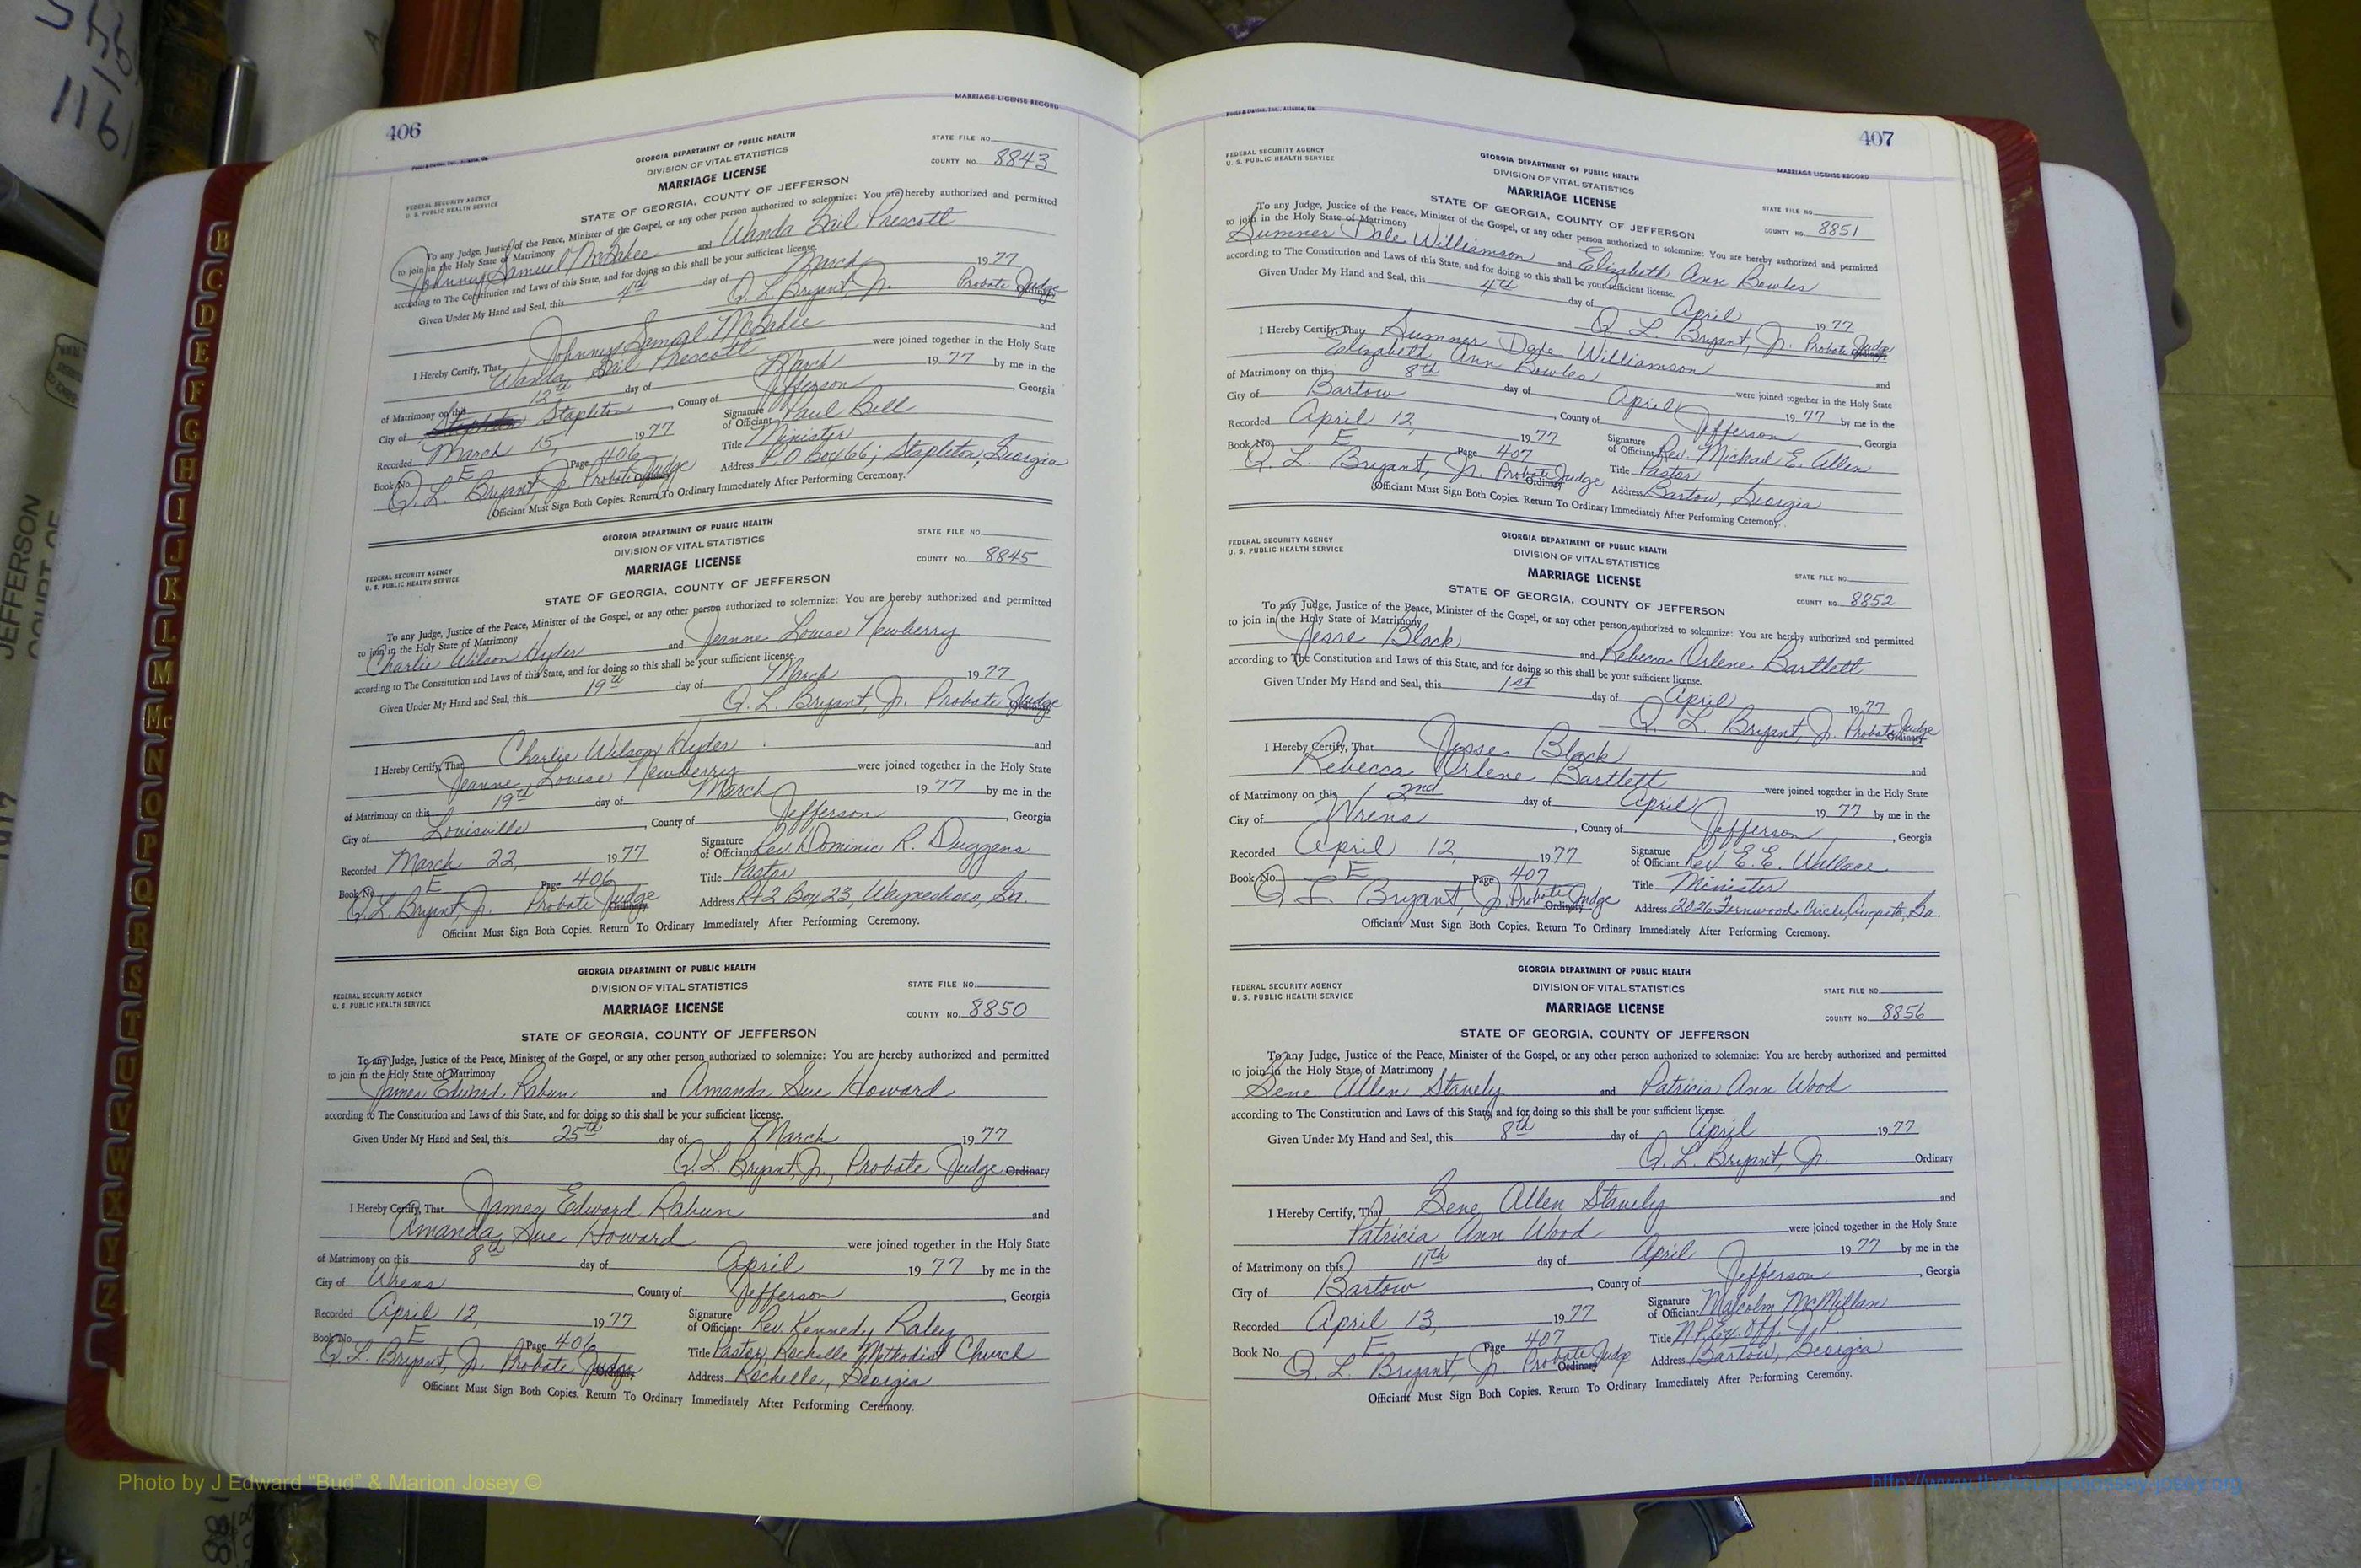 406
MARRIAGE LICENSE RECORD
GEORGIA DEPARTMENT OF PUBLIC HEALTH
DIVISION OF VITAL STATISTICS
MARRIAGE LICENSE
STATE OF GEORGIA, COUNTY OF JEFFERSON
FEDERAL SECURITY AGENCY
U. S. PUBLIC HEALTH SERVICE
STATE FILE NO.
COUNTY NO. 8843
To any Judge, Justice of the Peace, Minister of the Gospel, or any other person authorized to solemnize: You are hereby authorized and permitted
to join in the Holy State of Matrimony
Johnny Samuel McGahee and Wanda Gail Prescott
according to The Constitution and Laws of this State, and for doing so this shall be your sufficient license.
Given Under My Hand and Seal, this 4th day of March 1977
Q. L. Bryant, Jr. Probate Judge
I Hereby Certify, That Johnny Samuel McGahee and
Wanda Gail Prescott were joined together in the Holy State
of Matrimony on the 12th day of March 1977 by me in the
City of Stapleton, County of Jefferson, Georgia
Recorded March 15, 1977
Signature of Officiant Paul Bell
Book No. E Page 406
Title Minister
Q. L. Bryant, Jr. Probate Judge Ordinary
Address P.O Box 66; Stapleton, Georgia
Officiant Must Sign Both Copies. Return To Ordinary Immediately After Performing Ceremony.
GEORGIA DEPARTMENT OF PUBLIC HEALTH
DIVISION OF VITAL STATISTICS
MARRIAGE LICENSE
STATE OF GEORGIA, COUNTY OF JEFFERSON
FEDERAL SECURITY AGENCY
U. S. PUBLIC HEALTH SERVICE
STATE FILE NO.
COUNTY NO. 8845
To any Judge, Justice of the Peace, Minister of the Gospel, or any other person authorized to solemnize: You are hereby authorized and permitted
to join in the Holy State of Matrimony
Charlie Wilson Hyder and Jeanne Louise Newberry
according to The Constitution and Laws of this State, and for doing so this shall be your sufficient license.
Given Under My Hand and Seal, this 19th day of March 1977
Q. L. Bryant, Jr. Probate Judge Ordinary
I Hereby Certify, That Charlie Wilson Hyder and
Jeanne Louise Newberry were joined together in the Holy State
of Matrimony on this 19th day of March 1977 by me in the
City of Louisville, County of Jefferson, Georgia
Recorded March 22, 1977
Signature of Officiant Rev. Dominic R. Duggens
Book No. E Page 406
Title Pastor
Q. L. Bryant, Jr. Probate Judge Ordinary
Address Rt 2 Box 23, Waynesboro, Ga.
Officiant Must Sign Both Copies. Return To Ordinary Immediately After Performing Ceremony.
GEORGIA DEPARTMENT OF PUBLIC HEALTH
DIVISION OF VITAL STATISTICS
MARRIAGE LICENSE
STATE OF GEORGIA, COUNTY OF JEFFERSON
FEDERAL SECURITY AGENCY
U. S. PUBLIC HEALTH SERVICE
STATE FILE NO.
COUNTY NO. 8850
To any Judge, Justice of the Peace, Minister of the Gospel, or any other person authorized to solemnize: You are hereby authorized and permitted
to join in the Holy State of Matrimony
James Edward Rabun and Amanda Sue Howard
according to The Constitution and Laws of this State, and for doing so this shall be your sufficient license.
Given Under My Hand and Seal, this 25th day of March 1977
Q. L. Bryant, Jr., Probate Judge Ordinary
I Hereby Certify, That James Edward Rabun and
Amanda Sue Howard were joined together in the Holy State
of Matrimony on this 8th day of April 1977 by me in the
City of Wrens, County of Jefferson, Georgia
Recorded April 12, 1977
Signature of Officiant Rev. Kennedy Raley
Book No. E Page 406
Title Pastor, Rochelle Methodist Church
Q. L. Bryant, Jr. Probate Judge Ordinary
Address Rochelle, Georgia
Officiant Must Sign Both Copies. Return To Ordinary Immediately After Performing Ceremony.
407
MARRIAGE LICENSE RECORD
FEDERAL SECURITY AGENCY
U. S. PUBLIC HEALTH SERVICE
GEORGIA DEPARTMENT OF PUBLIC HEALTH
DIVISION OF VITAL STATISTICS
MARRIAGE LICENSE
STATE OF GEORGIA, COUNTY OF JEFFERSON
STATE FILE NO.
COUNTY NO. 8851
To any Judge, Justice of the Peace, Minister of the Gospel, or any other person authorized to solemnize: You are hereby authorized and permitted
to join in the Holy State of Matrimony
Sumner Dale Williamson and Elizabeth Ann Bowles
according to The Constitution and Laws of this State, and for doing so this shall be your sufficient license.
Given Under My Hand and Seal, this 4th day of April 1977
Q. L. Bryant, Jr. Probate Judge Ordinary
I Hereby Certify, That Sumner Dale Williamson and
Elizabeth Ann Bowles were joined together in the Holy State
of Matrimony on this 8th day of April 1977 by me in the
City of Bartow, County of Jefferson, Georgia
Recorded April 12, 1977
Signature of Officiant Rev. Michael E. Allen
Book No. E Page 407
Title Pastor
Q. L. Bryant, Jr. Probate Judge Ordinary
Address Bartow, Georgia
Officiant Must Sign Both Copies. Return To Ordinary Immediately After Performing Ceremony.
FEDERAL SECURITY AGENCY
U. S. PUBLIC HEALTH SERVICE
GEORGIA DEPARTMENT OF PUBLIC HEALTH
DIVISION OF VITAL STATISTICS
MARRIAGE LICENSE
STATE OF GEORGIA, COUNTY OF JEFFERSON
STATE FILE NO.
COUNTY NO. 8852
To any Judge, Justice of the Peace, Minister of the Gospel, or any other person authorized to solemnize: You are hereby authorized and permitted
to join in the Holy State of Matrimony
Jesse Black and Rebecca Orlene Bartlett
according to The Constitution and Laws of this State, and for doing so this shall be your sufficient license.
Given Under My Hand and Seal, this 1st day of April 1977
Q. L. Bryant, Jr. Probate Judge Ordinary
I Hereby Certify, That Jesse Black and
Rebecca Orlene Bartlett were joined together in the Holy State
of Matrimony on this 2nd day of April 1977 by me in the
City of Wrens, County of Jefferson, Georgia
Recorded April 12, 1977
Signature of Officiant Rev. E. E. Wallace
Book No. E Page 407
Title Minister
Q. L. Bryant, Jr. Probate Judge Ordinary
Address 2026 Fernwood Circle, Augusta, Ga.
Officiant Must Sign Both Copies. Return To Ordinary Immediately After Performing Ceremony.
FEDERAL SECURITY AGENCY
U. S. PUBLIC HEALTH SERVICE
GEORGIA DEPARTMENT OF PUBLIC HEALTH
DIVISION OF VITAL STATISTICS
MARRIAGE LICENSE
STATE OF GEORGIA, COUNTY OF JEFFERSON
STATE FILE NO.
COUNTY NO. 8856
To any Judge, Justice of the Peace, Minister of the Gospel, or any other person authorized to solemnize: You are hereby authorized and permitted
to join in the Holy State of Matrimony
Gene Allen Stavely and Patricia Ann Wood
according to The Constitution and Laws of this State, and for doing so this shall be your sufficient license.
Given Under My Hand and Seal, this 8th day of April 1977
Q. L. Bryant, Jr. Ordinary
I Hereby Certify, That Gene Allen Stavely and
Patricia Ann Wood were joined together in the Holy State
of Matrimony on this 11th day of April 1977 by me in the
City of Bartow, County of Jefferson, Georgia
Recorded April 13, 1977
Signature of Officiant Malcolm McMillan
Book No. E Page 407
Title N.P. Ex. Off. J. P.
Q. L. Bryant, Jr. Probate Judge Ordinary
Address Bartow, Georgia
Officiant Must Sign Both Copies. Return To Ordinary Immediately After Performing Ceremony.
B
C
D
E
F
G
H
I
J
K
L
M
Mc
N
O
P
Q
R
S
T
U
V
W
X
Y
Z
1161
JEFFERSON
COURT OF
Photo by J Edward "Bud" & Marion Josey ©